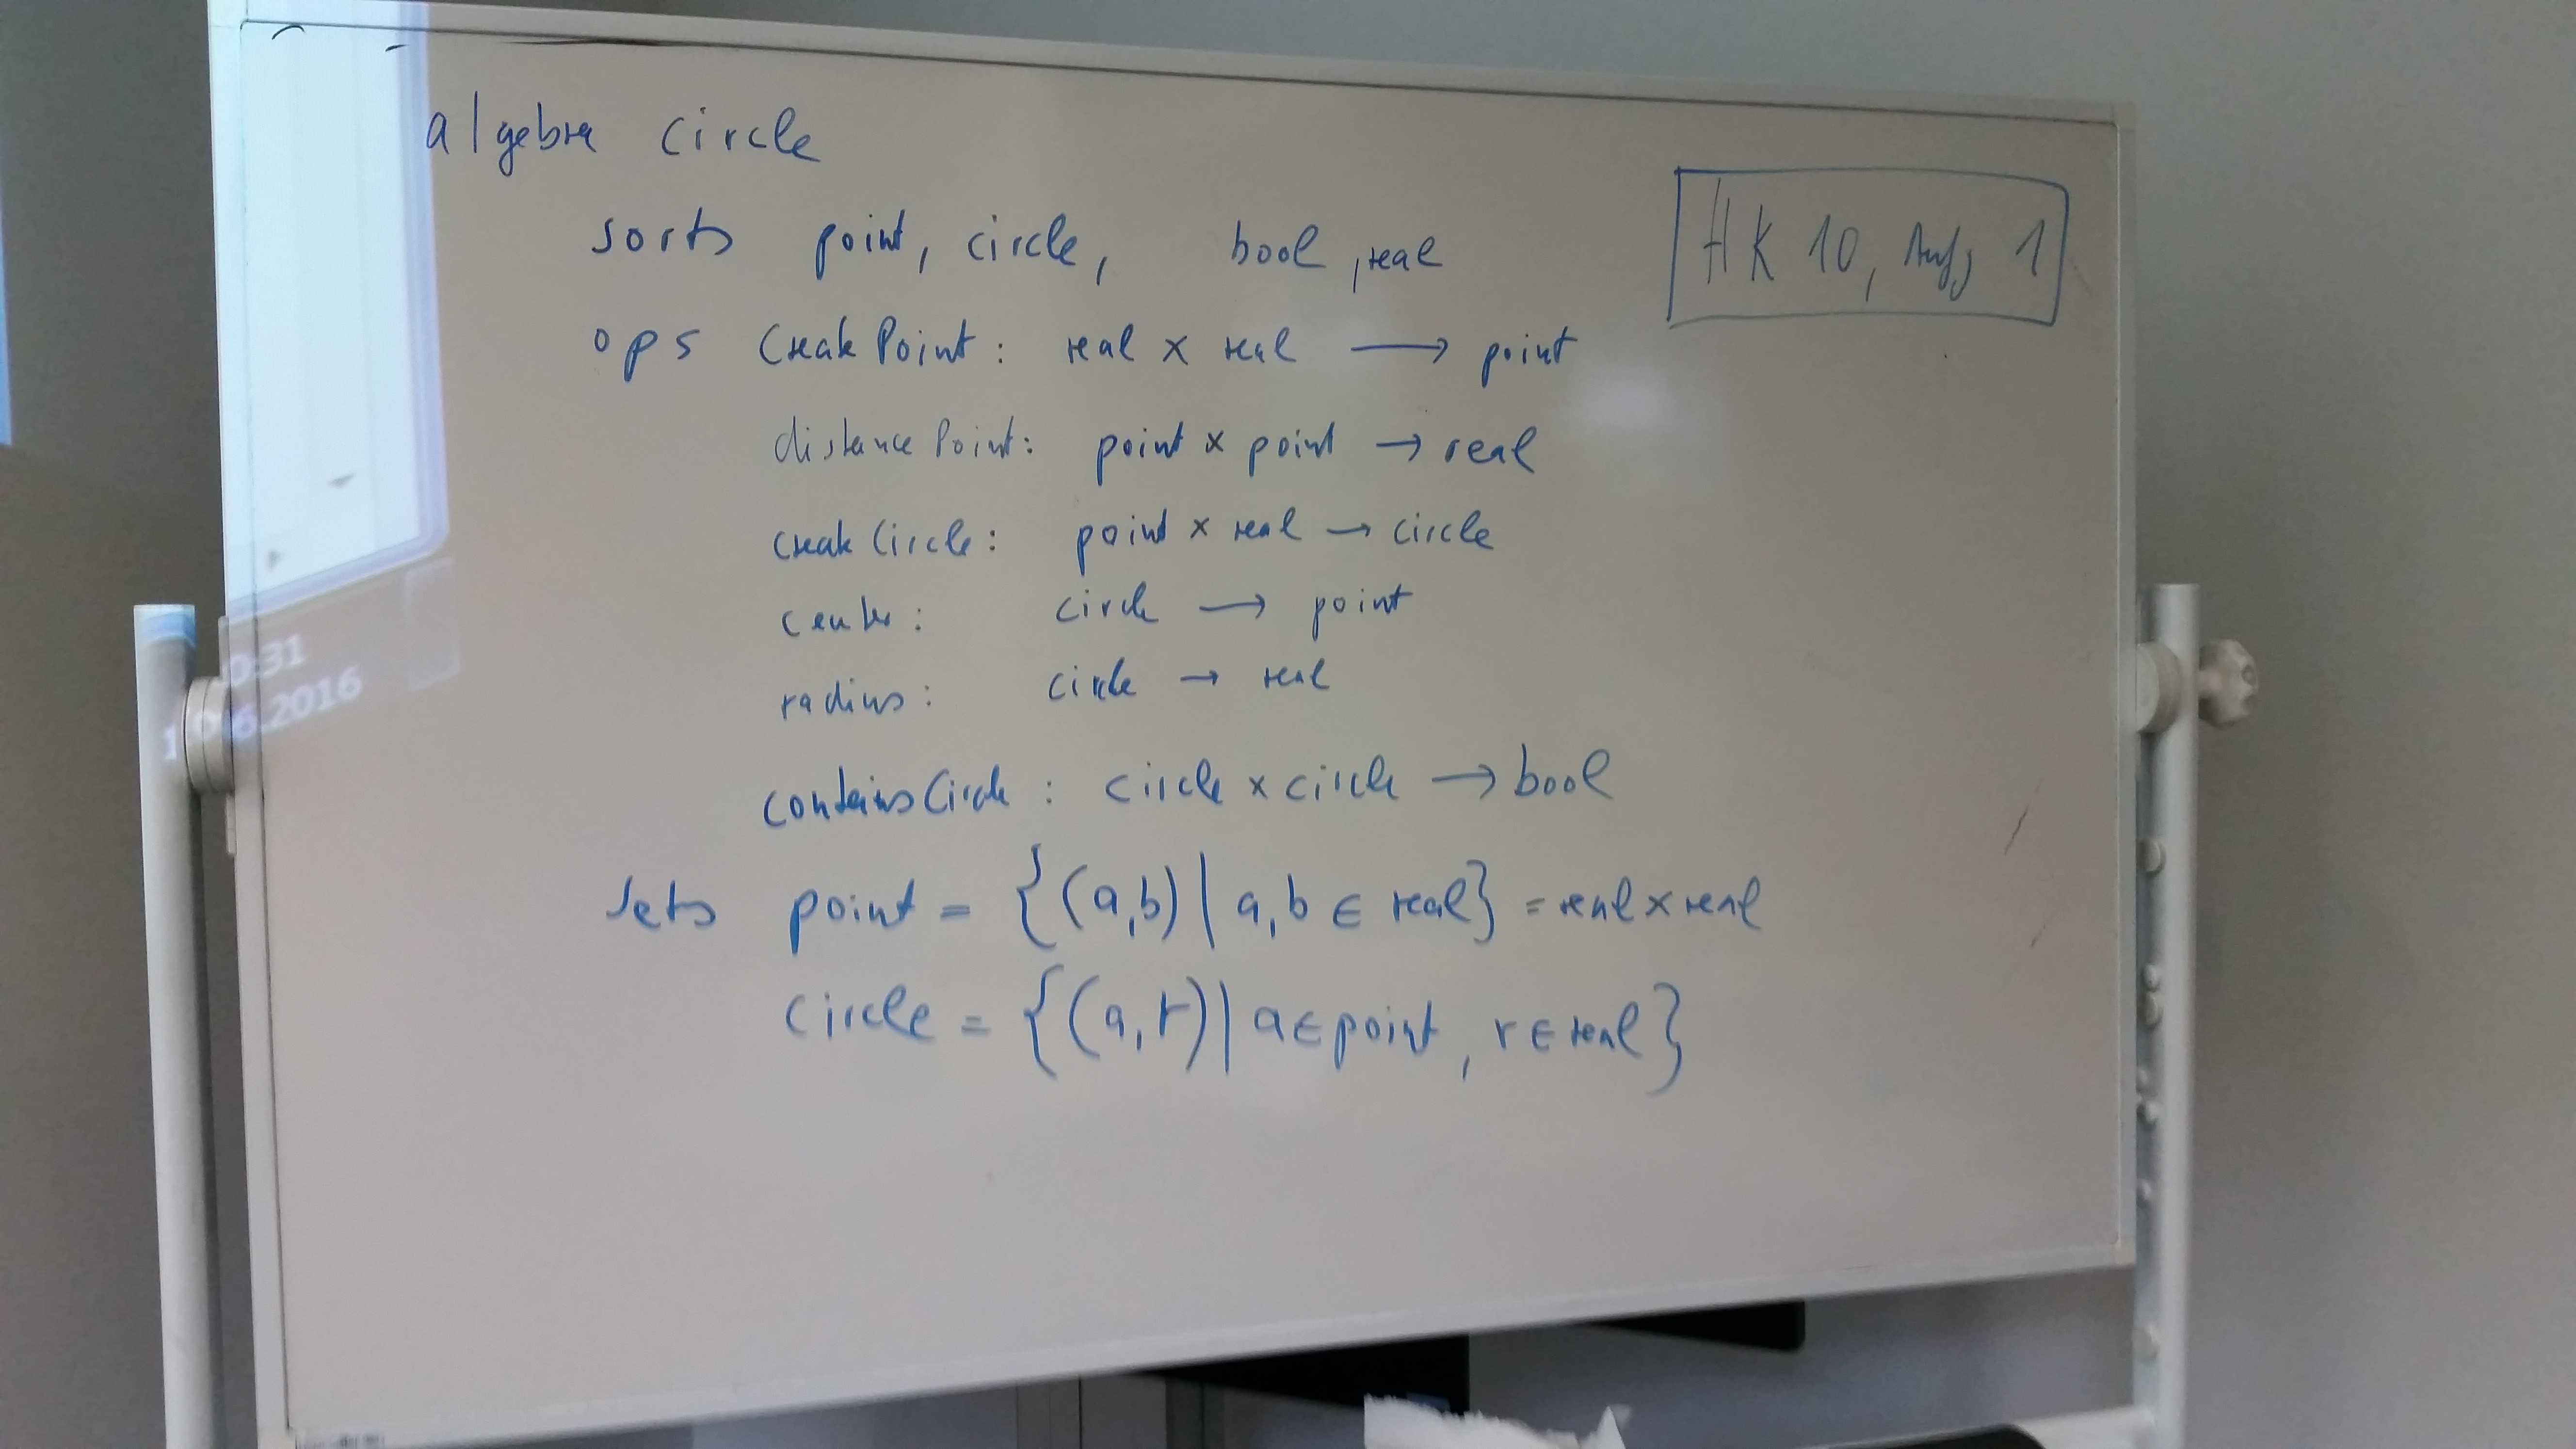 algebra circle
sorts point, circle, bool, real
HK 10, Aufg 1
ops createPoint: real × real → point
distancePoint: point × point → real
createCircle: point × real → circle
center: circle → point
radius: circle → real
containsCircle: circle × circle → bool
sets point = {(a,b) | a,b ∈ real} = real × real
circle = {(a,r) | a ∈ point, r ∈ real}
0:31
.6.2016